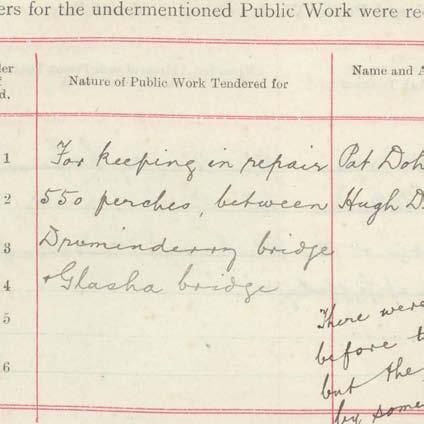 ers for the undermentioned Public Work were re
der
Nature of Public Work Tendered for
Name and A
d.
1 For keeping in repair Pat Doh
2 550 perches, between Hugh D
3 Druminderry bridge
4 + Glasha bridge
5 There were
before t
6 but the
by some